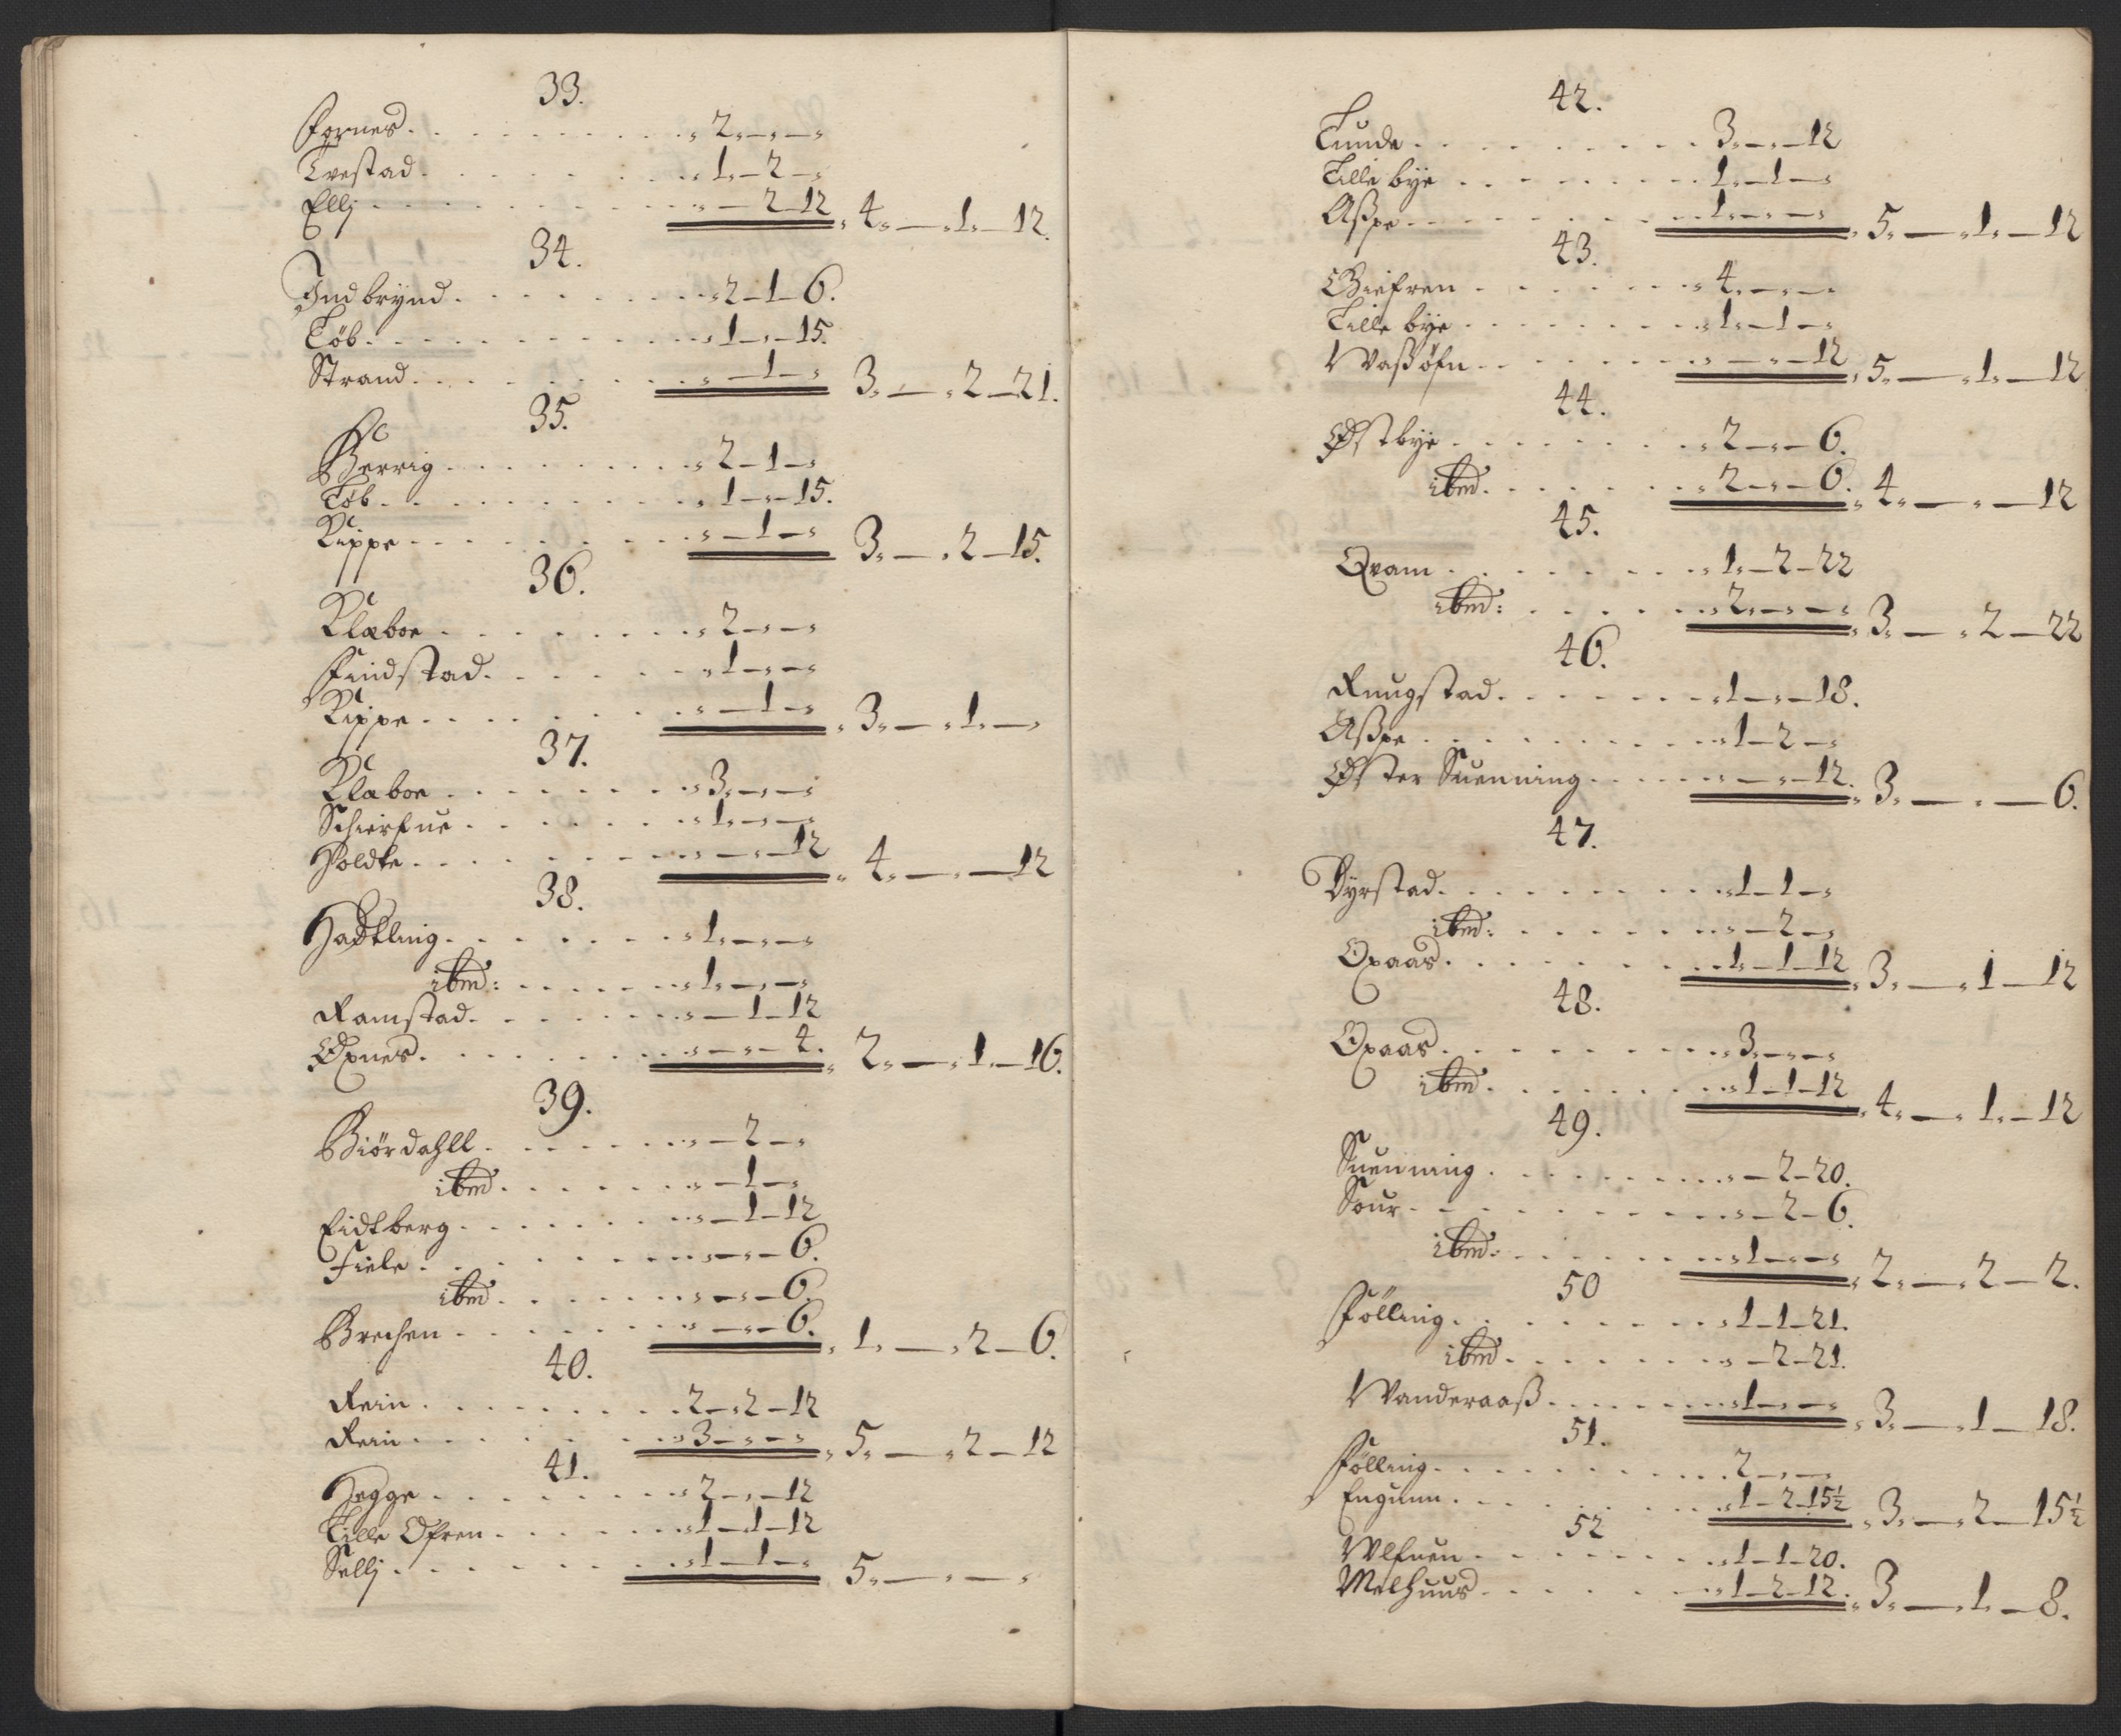 33.
Fornes . . . . . . . . . „ 2 „ — „ — „
Tvestad . . . . . . . . „ 1 „ — 2 — „
Ellj . . . . . . . . . „ — 2 — 12 „ 4 „ — „ 1 „ — 12.
34.
Indbrÿnd . . . . . . . „ 2 — 1 — 6.
Løb . . . . . . . . . „ 1 — „ — 15.
Strand . . . . . . . . „ — 1 — „ 3 „ — „ 2 — 21.
35.
Berrig . . . . . . . . „ 2 — 1 — „
Løb . . . . . . . . . „ 1 — „ — 15.
Kippe . . . . . . . . „ — 1 — „ 3 „ — „ 2 — 15.
36.
Klæboe . . . . . . . . „ 2 — „ — „
Findstad . . . . . . . „ 1 — „ — „
Kippe . . . . . . . . „ — 1 — „ „ 3 „ — „ 1 „ — „
37.
Klæboe . . . . . . . . „ 3 „ — „ — „
Schierfue . . . . . . . „ 1 „ — „ — „
Holdte . . . . . . . . „ — „ — 12 „ 4 „ — „ — 12
38.
Hadtling . . . . . . . „ 1 „ — „ — „
ibm̃: . . . . . . „ 1 „ — „ — „
Ramstad . . . . . . . „ — 1 — 12
Øxnes . . . . . . . . „ — „ — 4. „ 2 „ — „ 1 „ — 16.
39.
Biördahll . . . . . . . „ — 2 — „
ibm̃ . . . . . . „ — 1 — „
Eidtberg . . . . . . . „ — 1 — 12
Fiele . . . . . . . . „ — „ — 6.
ibm̃ . . . . . . „ — „ — 6.
Brechen . . . . . . . „ — „ — 6. „ 1 „ — „ 2 — 6.
40.
Rein . . . . . . . . 2 — „ 2 — 12
Rein . . . . . . . . „ 3 — „ — „ „ 5 „ — „ 2 — 12
41.
Hegge . . . . . . . . „ 2 — „ — 12
Lille Ofren . . . . . . „ 1 — 1 — 12
Sellj . . . . . . . . „ 1 — 1 — „ 5 „ — „ — „
42.
Lunde . . . . . . . . . 3 „ — „ — 12
Lille bÿe . . . . . . . . 1 „ — 1 — „
Aßpe . . . . . . . . . 1 „ — „ — „ „ 5 „ — „ 1 „ — 12
43.
Giefren . . . . . . . „ 4 „ — „ —
Lille bÿe . . . . . . . „ 1 „ — 1 — „
Waßøfn . . . . . . . „ — „ — 12 „ 5 „ — „ 1 „ — 12
44.
Østbÿe . . . . . . . . „ 2 — „ — 6.
ibm̃ . . . . . . „ 2 — „ — 6. „ 4 „ — „ — 12
45.
Qvam . . . . . . . . „ 1 „ — 2 — 22
ibm̃: . . . . . „ 2 „ — „ — „ „ 3 „ — „ 2 — 22
46.
Ruugstad . . . . . . . „ 1 — „ — 18.
Aßpe . . . . . . . . „ 1 — 2 — „
Øster Suenning . . . . . „ — „ — 12. „ 3 „ — „ — 6.
47.
Dÿrstad . . . . . . . . „ 1 — 1 — „
ibm̃: . . . . . . „ — 2 — „
Opaas . . . . . . . . 1 „ — 1 — 12 „ 3 „ — „ 1 — 12
48.
Opaas . . . . . . . . „ 3 „ — „ — „
ibm̃ . . . . . . „ 1 — 1 — 12 „ 4 „ — „ 1 „ — 12
49.
Suenning . . . . . . . „ — 2 — 20.
Sour . . . . . . . . „ — 2 — 6.
ibm̃: . . . . . . „ 1 — „ — „ „ 2 „ — „ 2 — 2.
50
Fölling . . . . . . . . „ 1 — 1 — 21.
ibm̃ . . . . . . „ — 2 — 21.
Wanderaaß . . . . . . „ 1 — „ — „ „ 3 „ — „ 1 — 18.
51.
Fölling . . . . . . . . 2 — „ —
Engumn . . . . . . . . „ 1 — 2 — 15½ „ 3 „ — „ 2 — 15½
52
Wlfnen . . . . . . . . „ 1 — 1 — 20.
Melhuus . . . . . . . „ 1 — 2 — 12. „ 3 „ — „ 1 — 8.